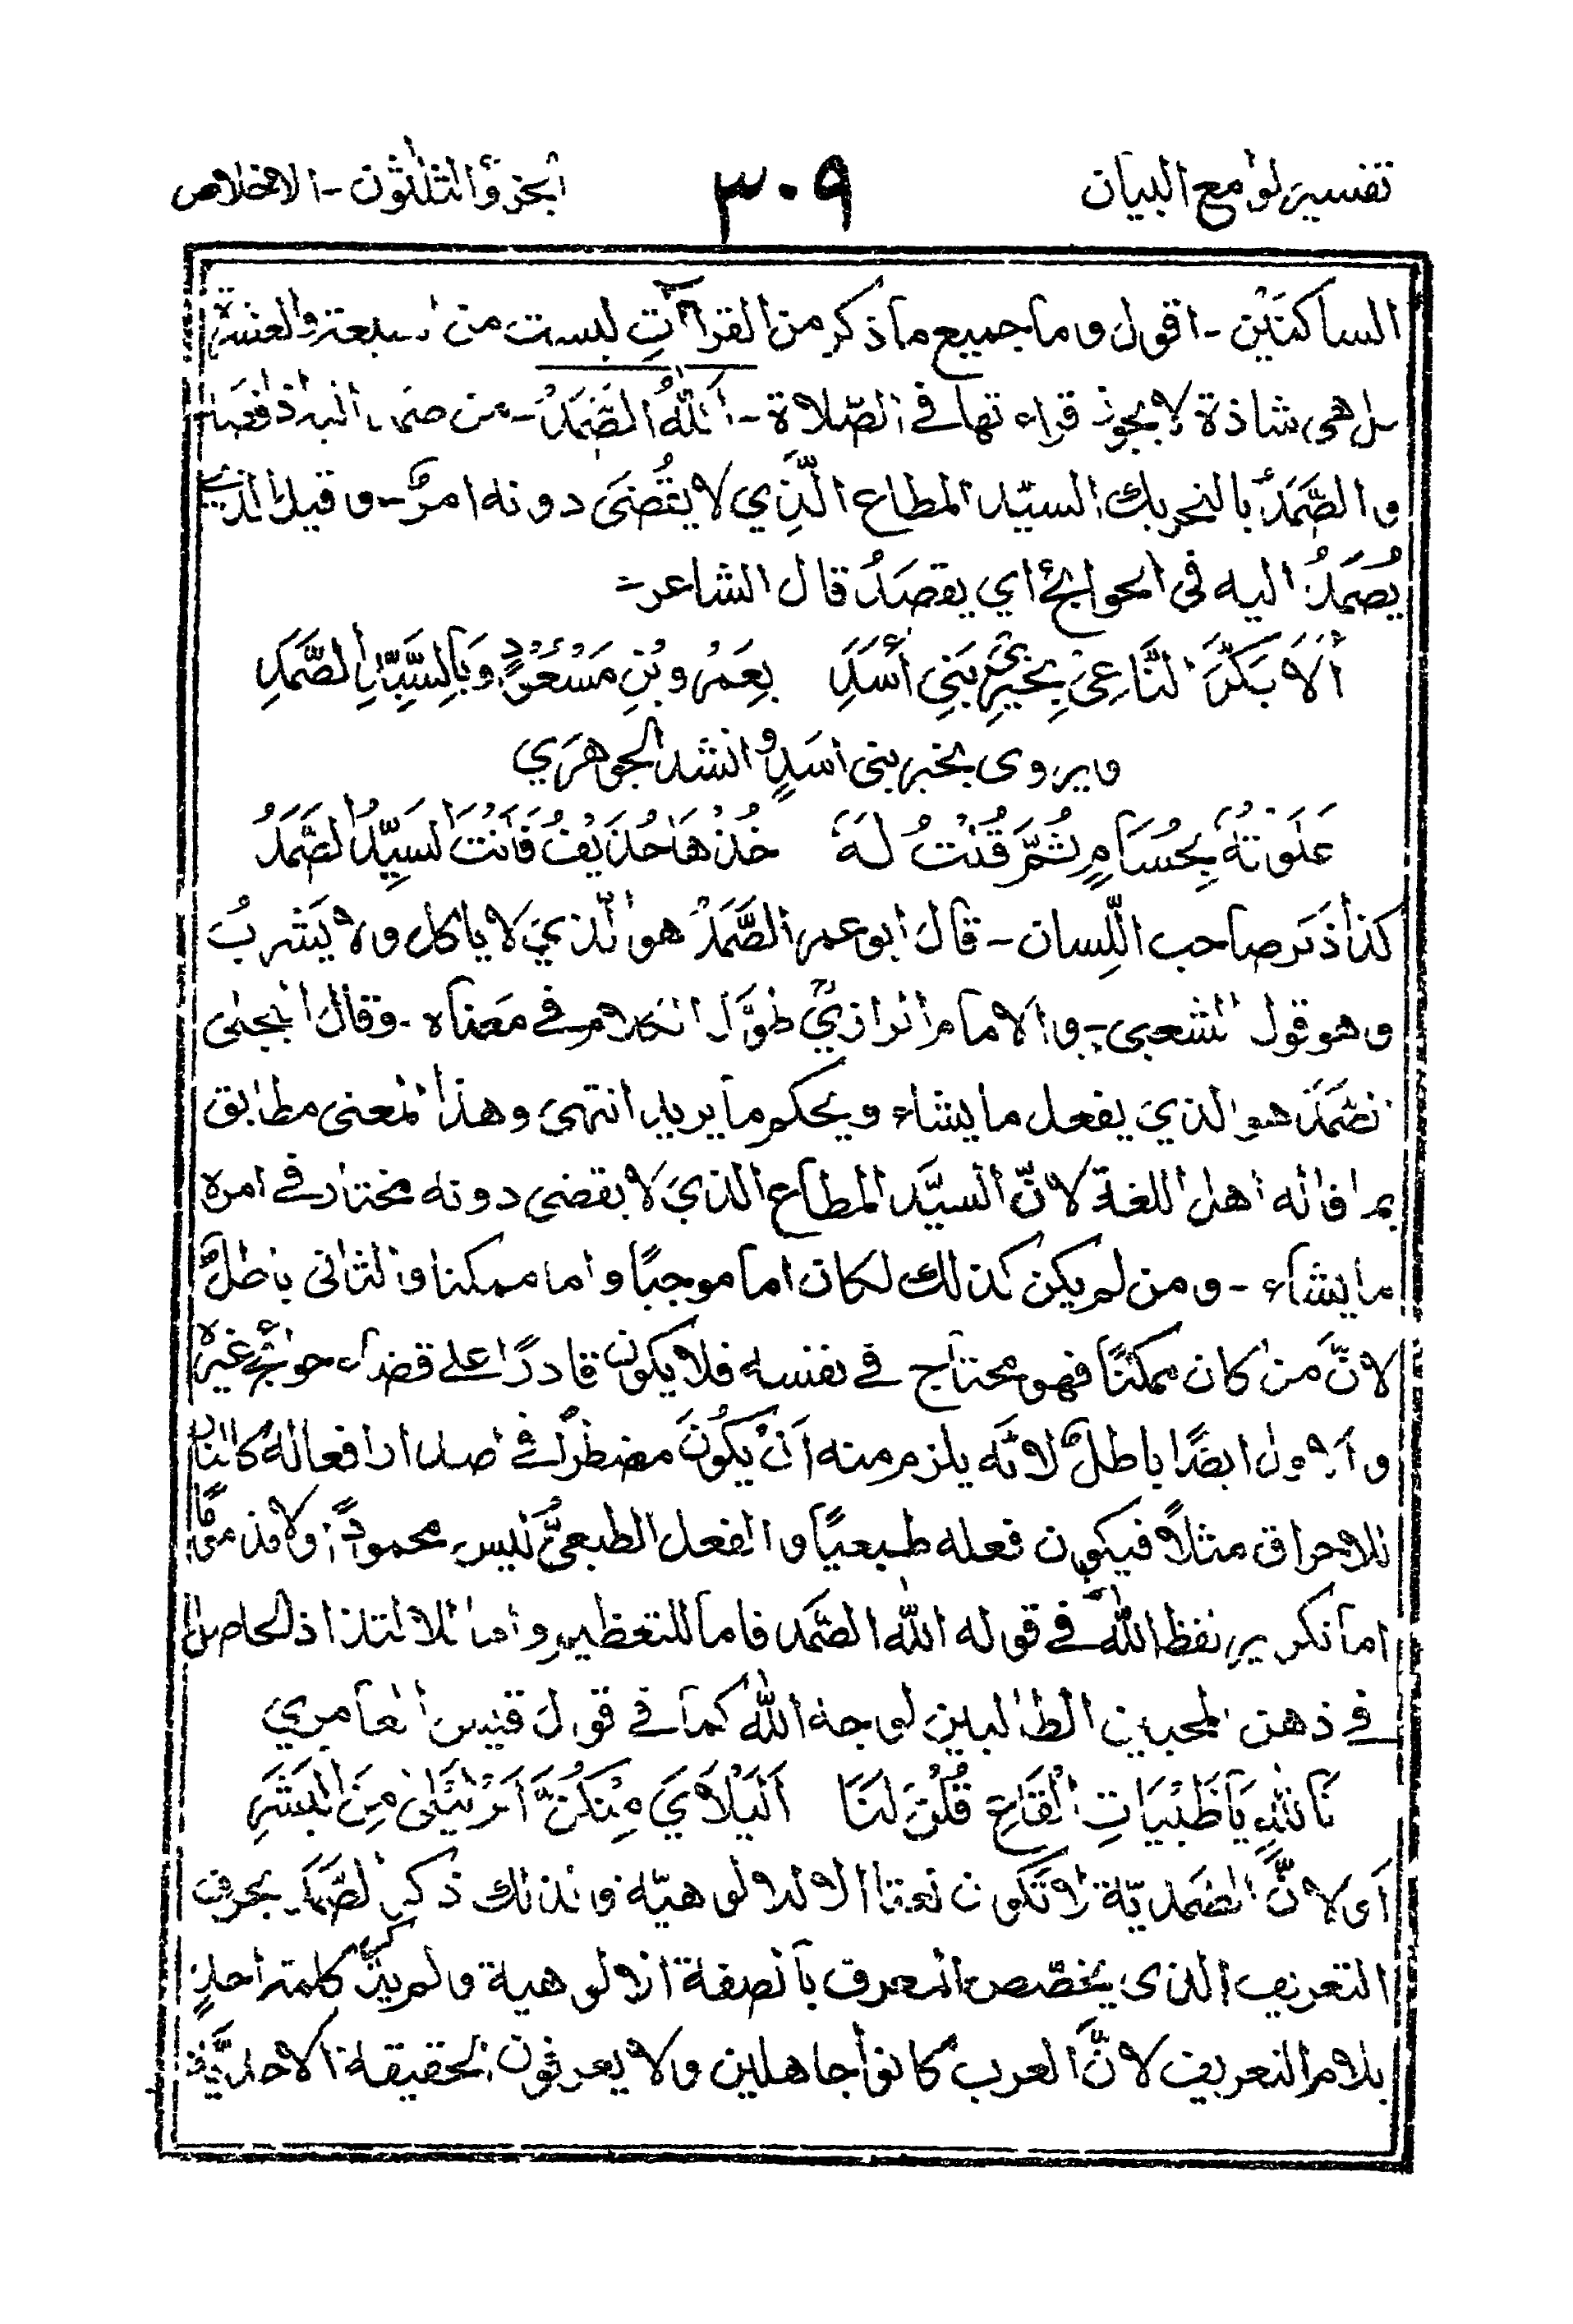 تفسير لوامع البيان
٣٠٩
الجزؤ الثلثون - الاخلاص
الساكنَيْن - اقول وما جميع ما ذكر من القرآتِ ليست من السبعة والعشرة
بل هى شاذة لا يجوز قراءتها فى الصّلاة - اَللّٰهُ الصَّمَدُ - من صمد اليه اذا قصده
والصَّمَدُ بالتحريك السيّد المطاع الّذِي لا يُقْضىَ دونه امرٌ - وقيل الذي
يُصْمَدُ اليه فى الحوائج اي يقصَدُ قال الشاعر -
أَلَا بَكَّرَ النَّاعِىْ بِخَيْرِ بَنِي أَسَدِ بِعَمْرِو بْنِ مَسْعُوْدٍ وَبِالسَّيِّدِ الصَّمَدِ
ويروى بخير بنى اسَدٍ وانشد الجوهَرَي
عَلَوْتُهُ بِحُسَامٍ ثُمَّ قُلْتُ لَهُ خُذْهَا حُذَيْفُ فَأَنْتَ السَيِّدُ الصَّمَدُ
كذا ذكر صاحب اللِّسان - قال ابو عمر الصَّمَدُ هو الّذي لا ياكل ولا يَشْربُ
وهو قول الشعبى - والامام الرازيؒ طوَّل الكلام فى معناه - وقال الجبائى
الصَّمَدُ هو الذي يفعل ما يشاء ويحكم ما يريد انتهى وهذا المعنى مطابق
بما قاله اهل اللغة لانّ السيَّد المطاع الذي لا يقضى دونه مختار فى امره
ما يشاء - ومن لم يكن كذلك لكان اما موجبًا واما ممكنا والثانى باطلٌ
لانّ من كان ممكنًا فهو محتاج فى نفسه فلا يكون قادرًا على قضاء حوائج غيره
والاول ايضًا باطلٌ لانّه يلزم منه اَنْ يكُونَ مضطرًا فى اصدار افعاله كالنار
للاحراق مثلًا فيكون فعله طبعيًا والفعل الطبعىُّ ليس محمودًا ولا مذمومًا
اما تكرير لفظ اللّٰه فى قوله اللّٰه الصَّمَد فاما للتعظيم واما للالتذاذ الحاصل
فى ذهن المحبين الطالبين لوجه اللّٰه كما فى قول قيس العامري
تَاللّٰهِ يَا ظَبْيَاتِ الْقَاعِ قُلْنَ لَنَا اَلَيْلَايَ مِنْكُنَّ اَمْ لَيْلىٰ مِنَ الْبَشَرِ
اَى لانَّ الصَّمَديّة لا تكون نعتا الا للالوهيّة ولذلك ذكر الصَّمَد بحرف
التعريف الذى يخصّص المعرف بالصفة الالوهية ولم يذكر كلمة احدٍ
بلام التعريف لانَّ العرب كانوا جاهلين ولا يعرفون الحقيقة الاحديّة